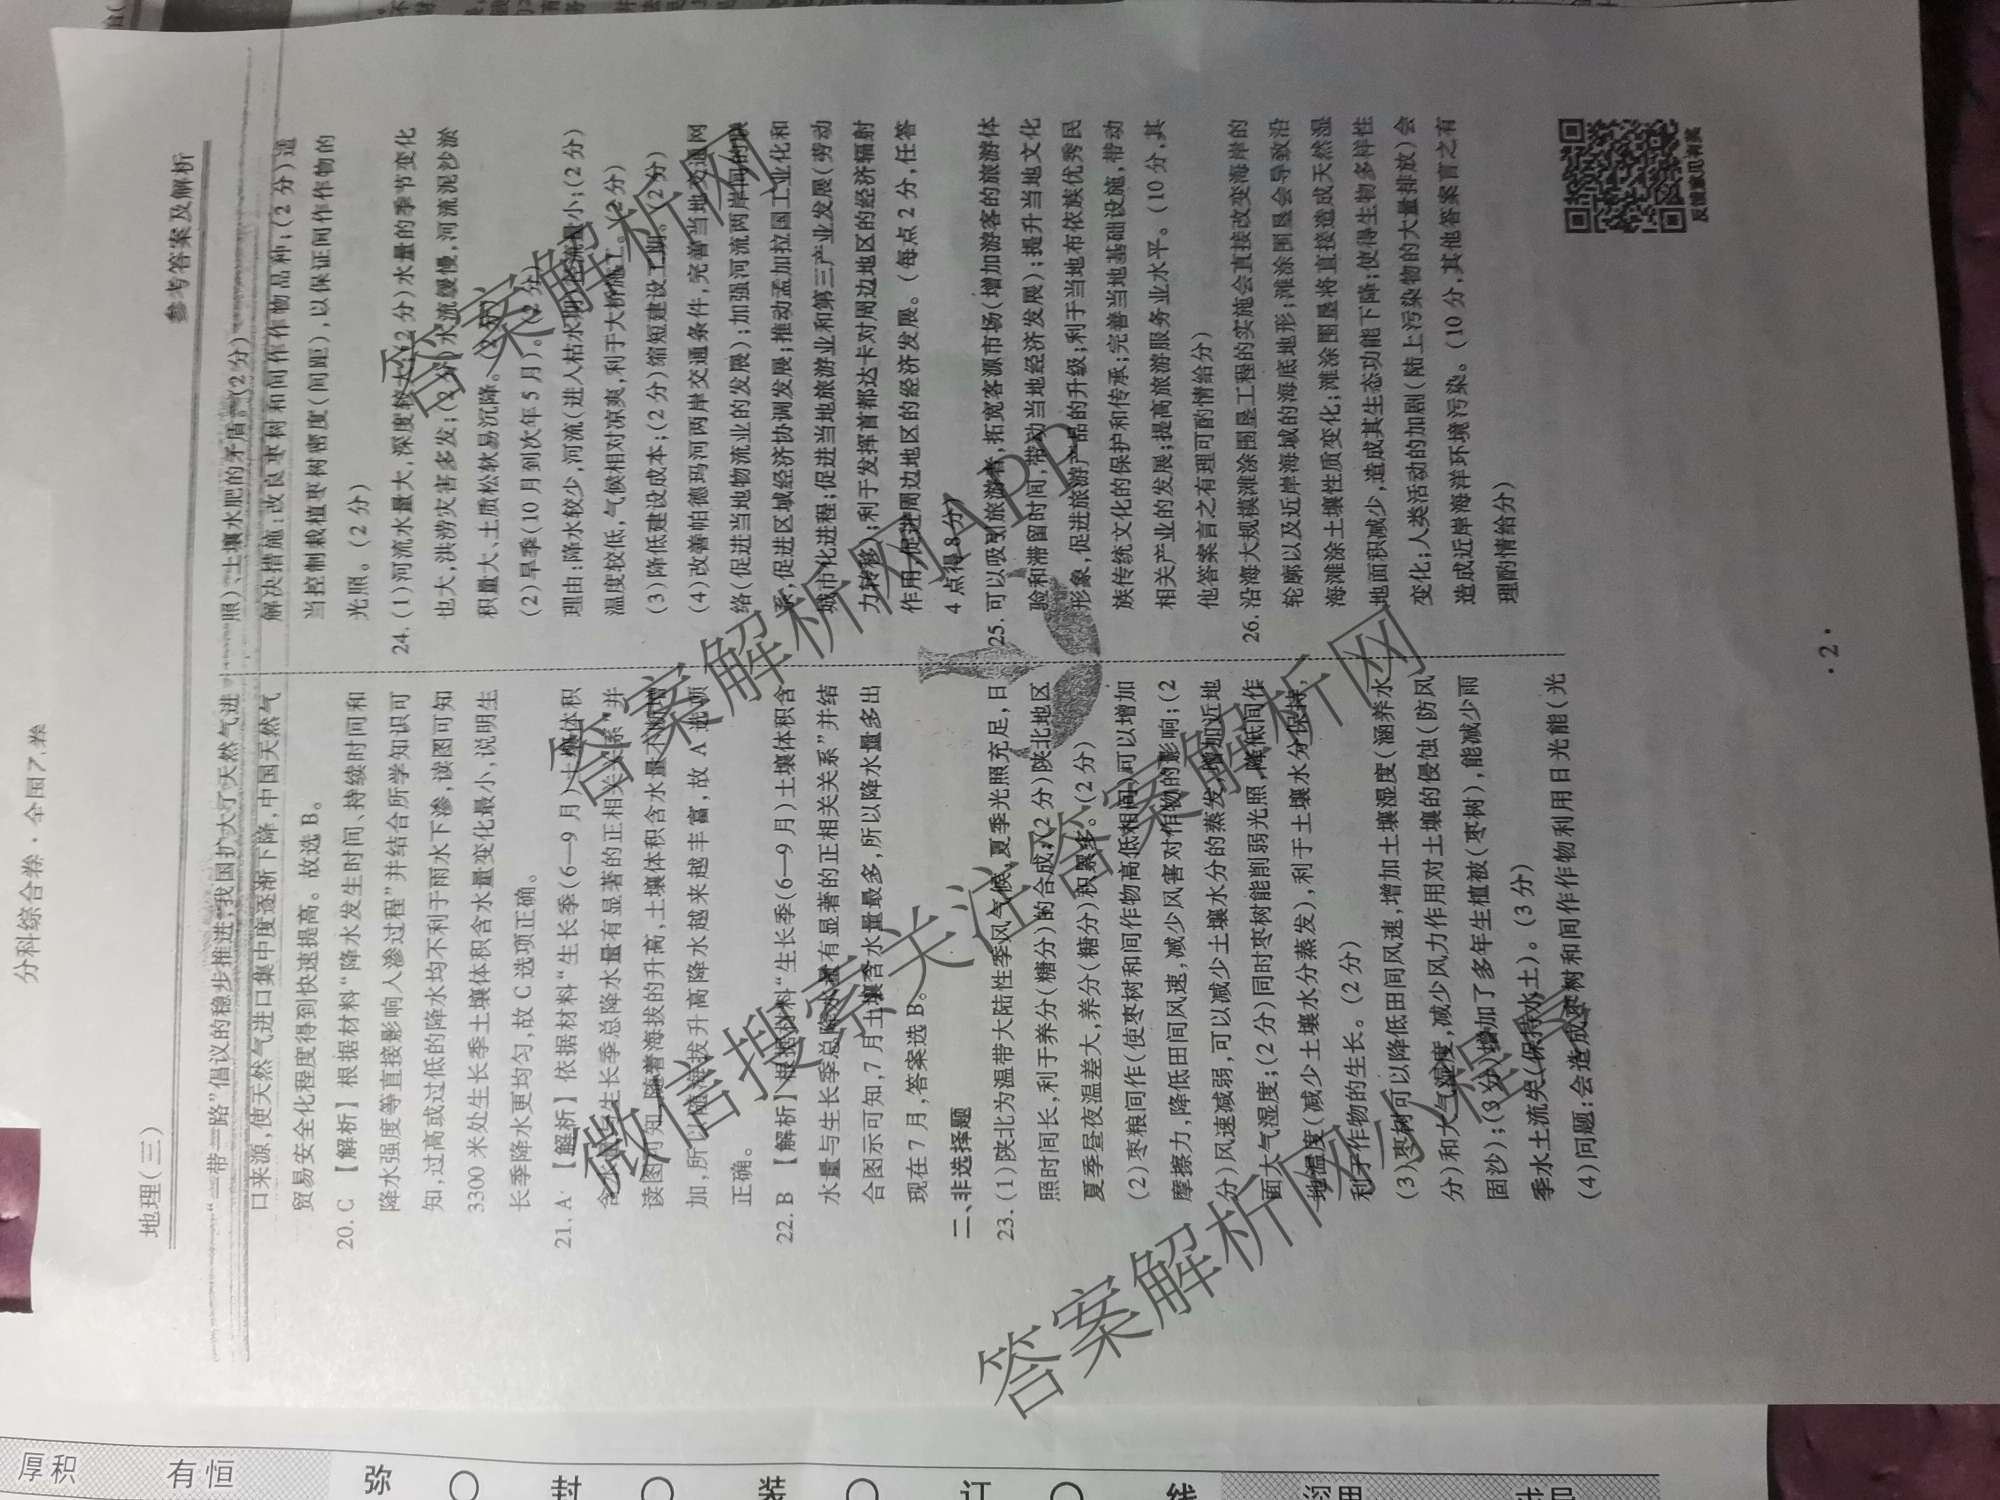 分科综合卷·全国
地理(三)
参考答案及解析
“一带一路”倡议的稳步推进,我国扩大了天然气进
口来源,使天然气进口集中度逐渐下降,中国天然气
贸易安全化程度得到快速提高。故选 B。
20. C 【解析】根据材料“降水发生时间、持续时间和
降水强度等直接影响入渗过程”并结合所学知识可
知,过高或过低的降水均不利于雨水下渗,读图可知
3300 米处生长季土壤体积含水量变化最小,说明生
长季降水更均匀,故 C 选项正确。
21. A 【解析】依据材料“生长季(6—9 月)土壤体积
含水量与生长季总降水量有显著的正相关关系”并
读图可知,随着海拔的升高,土壤体积含水量不断增
加,所以随海拔升高降水越来越丰富,故 A 选项
正确。
22. B 【解析】根据材料“生长季(6—9 月)土壤体积含
水量与生长季总降水量有显著的正相关关系”并结
合图示可知,7 月土壤含水量最多,所以降水量多出
现在 7 月,答案选 B。
二、非选择题
23. (1)陕北为温带大陆性季风气候,夏季光照充足,日
照时间长,利于养分(糖分)的合成;(2 分)陕北地区
夏季昼夜温差大,养分(糖分)积累多。(2 分)
(2)枣粮间作(使枣树和间作物高低相间)可以增加
摩擦力,降低田间风速,减少风害对作物的影响;(2
分)风速减弱,可以减少土壤水分的蒸发,增加近地
面大气湿度;(2 分)同时枣树能削弱光照,降低间作
地温度(减少土壤水分蒸发),利于土壤水分保持,
利于作物的生长。(2 分)
(3)枣树可以降低田间风速,增加土壤湿度(涵养水
分)和大气湿度,减少风力作用对土壤的侵蚀(防风
固沙);(3 分)增加了多年生植被(枣树),能减少雨
季水土流失(保持水土)。(3 分)
(4)问题:会造成枣树和间作作物利用日光能(光
照)、土壤水肥的矛盾。(2 分)
解决措施:改良枣树和间作作物品种;(2 分)适
当控制栽植枣树密度(间距),以保证间作作物的
光照。(2 分)
24. (1)河流水量大,深度较大;(2 分)水量的季节变化
也大,洪涝灾害多发;(2 分)水流缓慢,河流泥沙淤
积量大、土质松软易沉降。(2 分)
(2)旱季(10 月到次年 5 月)。(2 分)
理由:降水较少,河流(进入枯水期)径流量小;(2 分)
温度较低,气候相对凉爽,利于大桥施工。(2 分)
(3)降低建设成本;(2 分)缩短建设工期。(2 分)
(4)改善帕德玛河两岸交通条件,完善当地交通网
络(促进当地物流业的发展);加强河流两岸间的联
系,促进区域经济协调发展;推动孟加拉国工业化和
城市化进程;促进当地旅游业和第三产业发展(劳动
力转移);利于发挥首都达卡对周边地区的经济辐射
作用,促进周边地区的经济发展。(每点 2 分,任答
4 点得 8 分)
25. 可以吸引旅游者,拓宽客源市场(增加游客的旅游体
验和滞留时间,带动当地经济发展);提升当地文化
形象,促进旅游产品的升级;利于当地布依族优秀民
族传统文化的保护和传承;完善当地基础设施,带动
相关产业的发展;提高旅游服务业水平。(10 分,其
他答案言之有理可酌情给分)
26. 沿海大规模滩涂围垦工程的实施会直接改变海岸的
轮廓以及近岸海域的海底地形;滩涂围垦会导致沿
海滩涂土壤性质变化;滩涂围垦将直接造成天然湿
地面积减少,造成其生态功能下降;使得生物多样性
变化;人类活动的加剧(陆上污染物的大量排放)会
造成近岸海洋环境污染。(10 分,其他答案言之有
理酌情给分)
·2·
答案解析网
答案解析网APP
微信搜索关注答案解析网
答案解析网
厚积
有恒
弥
封
装
订